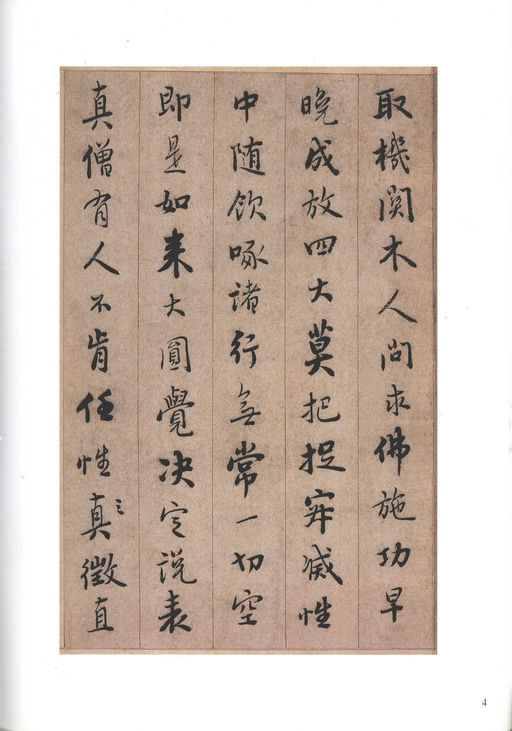 取機関木人問求佛施功早
晚成放四大莫把捉寂滅性
中随飲啄諸行無常一切空
即是如来大圓覺决定説表
真僧有人不肯任性真徵直
4